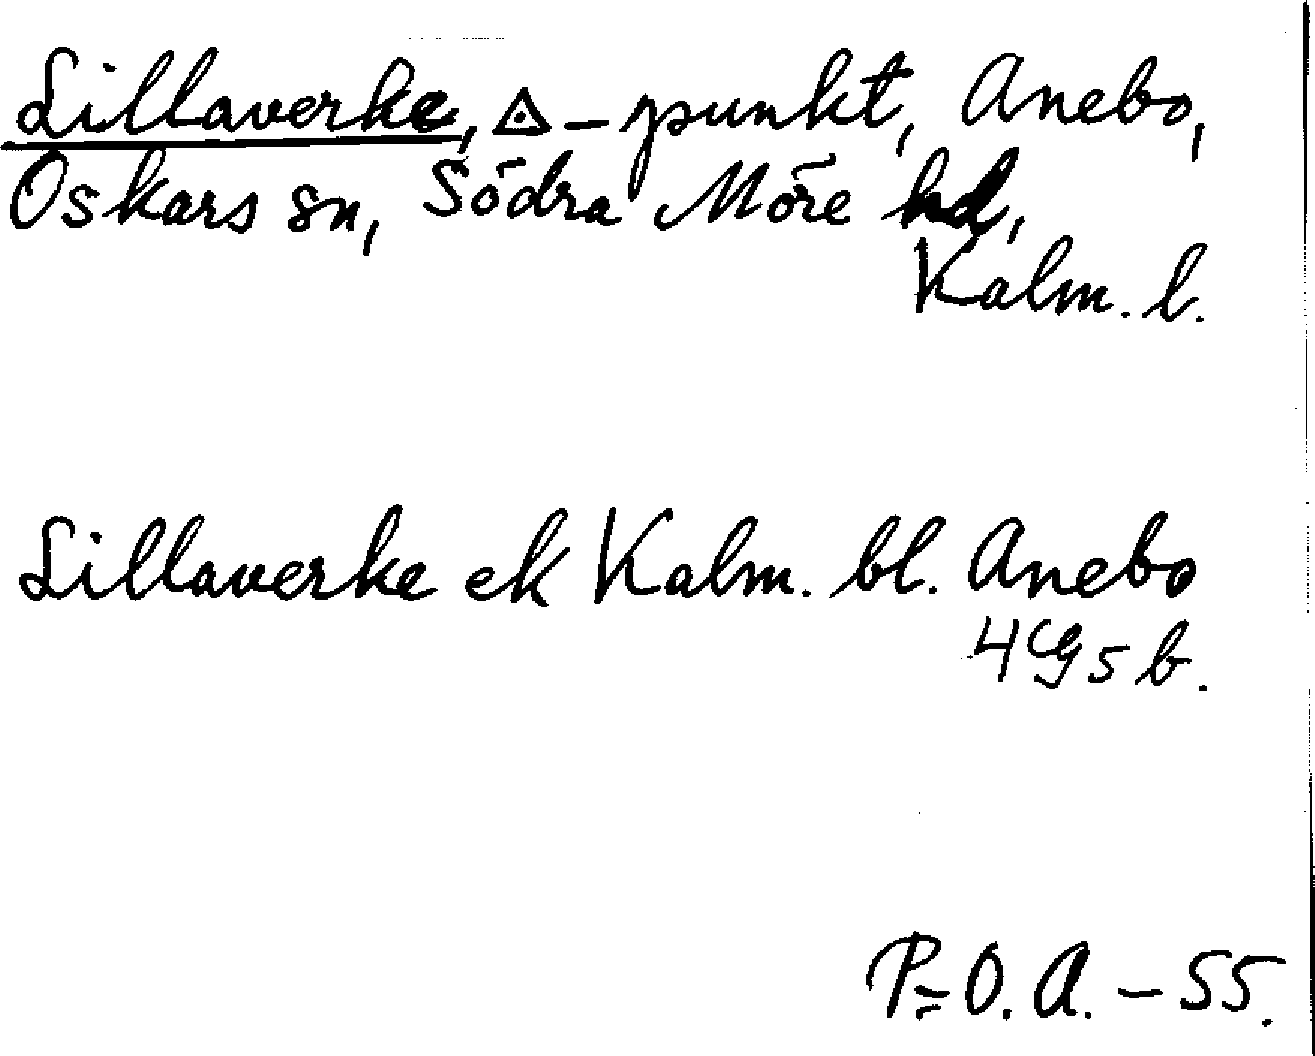 Lillaverke, △-punkt, Anebo,
Oskars sn, Södra Möre hd,
Kalm. l.
Lillaverke ek Kalm. bl. Anebo
4G5b.
P=O.A.-55.